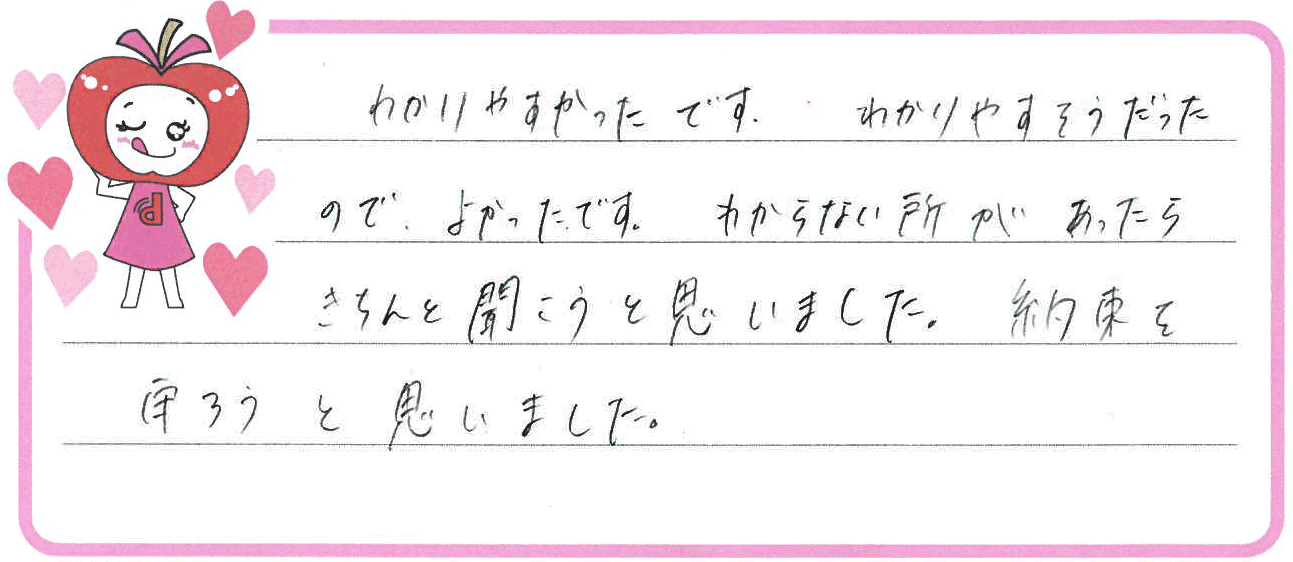 わかりやすかったです. わかりやすそうだった
ので、よかったです。 わからない所があったら
きちんと聞こうと思いました。 約束を
守ろうと思いました。